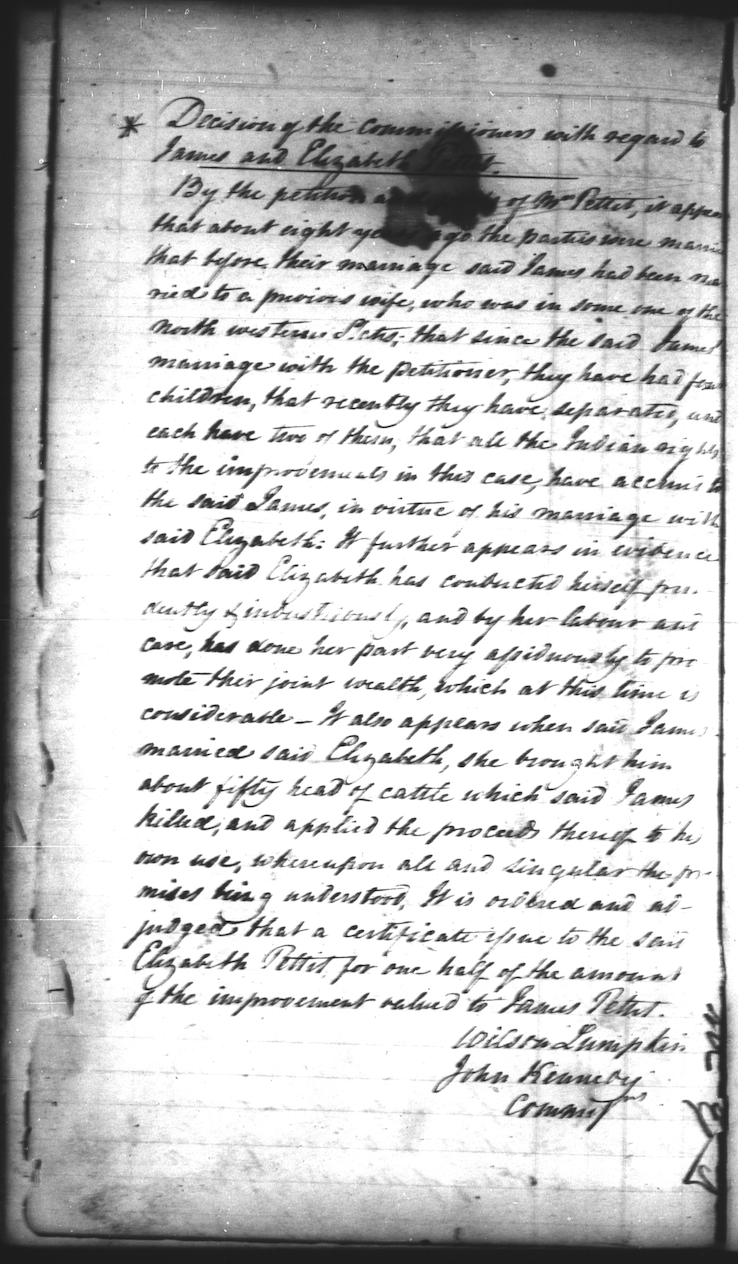 * Decision of the commissioners with regard to
James and Elizabeth Pettit.
By the petition and of Mrs Pettit, it appea
that about eight years ago the parties were marrie
that before their marriage said James had been ma
ried to a previous wife, who was in some one of the
north western States; that since the said James
marriage with the petitioner, they have had four
children, that recently they have separated, and
each have two of them, that all the Indian rights
to the improvements in this case, have accrued to
the said James, in virtue of his marriage with
said Elizabeth: It further appears in evidence
that said Elizabeth has conducted herself pru-
dently & industriously, and by her labour and
care, has done her part very assiduously to pro
mote ther joint wealth, which at this time is
considerable – It also appears when said James
married said Elizabeth, she brought him
about fifty head of cattle which said James
killed, and applied the proceeds thereof to his
own use, whereupon all and singular the pre-
mises being understood, It is ordered and ad-
judged that a certificate issue to the said
Elizabeth Pettit for one half of the amount
of the improvement valued to James Pettit.
Wilson Lumpkin
John Kennedy
Commrs